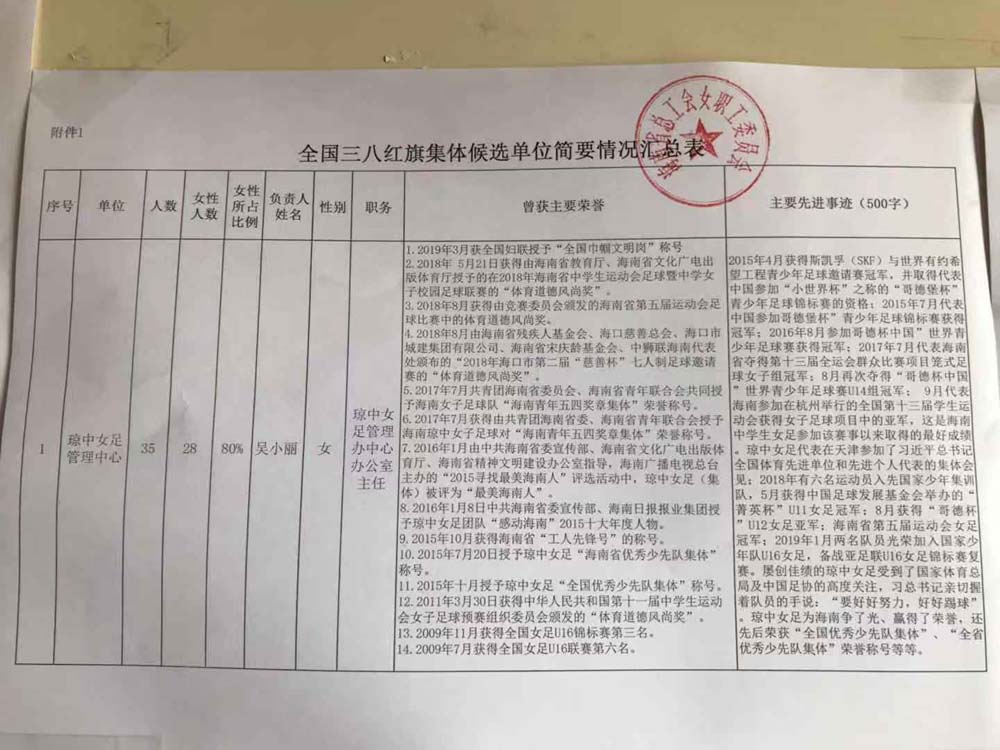 附件1
海南省总工会女职工委员会
全国三八红旗集体候选单位简要情况汇总表
序号
单位
人数
女性
人数
女性
所占
比例
负责人
姓名
性别
职务
曾获主要荣誉
主要先进事迹(500字)
1
琼中女足
管理中心
35
28
80%
吴小丽
女
琼中女
足管理
办中心
办公室
主任
1.2019年3月获全国妇联授予“全国巾帼文明岗”称号
2.2018年 5月21日获得由海南省教育厅、海南省文化广电出
版体育厅授予的在2018年海南省中学生运动会足球暨中学女
子校园足球联赛的“体育道德风尚奖”。
3.2018年8月获得由竞赛委员会颁发的海南省第五届运动会足
球比赛中的体育道德风尚奖。
4.2018年8月由海南省残疾人基金会、海口慈善总会、海口市
城建集团有限公司、海南省宋庆龄基金会、中狮联海南代表
处颁布的“2018年海口市第二届“慈善杯”七人制足球邀请
赛的“体育道德风尚奖”。
5.2017年7月共青团海南省委员会、海南省青年联合会共同授
予海南女子足球队“海南青年五四奖章集体”荣誉称号。
6.2017年7月获得由共青团海南省委、海南省青年联合会授予
海南琼中女子足球对“海南青年五四奖章集体”荣誉称号。
7.2016年1月由中共海南省委宣传部、海南省文化广电出版体
育厅、海南省精神文明建设办公室指导，海南广播电视总台
主办的“2015寻找最美海南人”评选活动中，琼中女足（集
体）被评为“最美海南人”。
8.2016年1月8日中共海南省委宣传部、海南日报报业集团授
予琼中女足团队“感动海南”2015十大年度人物。
9.2015年10月获得海南省“工人先锋号”的称号。
10.2015年7月20日授予琼中女足“海南省优秀少先队集体”
称号。
11.2015年十月授予琼中女足“全国优秀少先队集体”称号。
12.2011年3月30日获得中华人民共和国第十一届中学生运动
会女子足球预赛组织委员会颁发的“体育道德风尚奖”。
13.2009年11月获得全国女足U16锦标赛第三名。
14.2009年7月获得全国女足U16联赛第六名。
2015年4月获得斯凯孚（SKF）与世界有约希
望工程青少年足球邀请赛冠军，并取得代表
中国参加“小世界杯”之称的“哥德堡杯”
青少年足球锦标赛的资格；2015年7月代表
中国参加哥德堡杯”青少年足球锦标赛获得
冠军；2016年8月参加哥德杯中国”世界青
少年足球赛获得冠军；2017年7月代表海南
省夺得第十三届全运会群众比赛项目笼式足
球女子组冠军；8月再次夺得“哥德杯中国
”世界青少年足球赛U14组冠军； 9月代表
海南参加在杭州举行的全国第十三届学生运
动会获得女子足球项目中的亚军，这是海南
中学生女足参加该赛事以来取得的最好成绩
。琼中女足代表在天津参加了习近平总书记
全国体育先进单位和先进个人代表的集体会
见；2018年有六名运动员入先国家少年集训
队，5月获得中国足球发展基金会举办的“
菁英杯”U11女足冠军；8月获得“哥德杯
”U12女足亚军；海南省第五届运动会女足
冠军；2019年1月两名队员光荣加入国家少
年队U16女足，备战亚足联U16女足锦标赛复
赛。屡创佳绩的琼中女足受到了国家体育总
局及中国足协的高度关注，习总书记亲切握
着队员的手说：“要好好努力，好好踢球”
。琼中女足为海南争了光、赢得了荣誉，还
先后荣获“全国优秀少先队集体”、“全省
优秀少先队集体”荣誉称号等等。